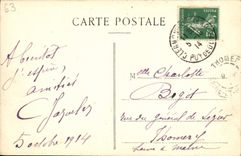 63
CARTE POSTALE
A bientot
j'espère,
amitiés
5 octobre 1914
Mlle Charlotte
Bozot
rue du général de Ségur
Thomery
Seine et Marne